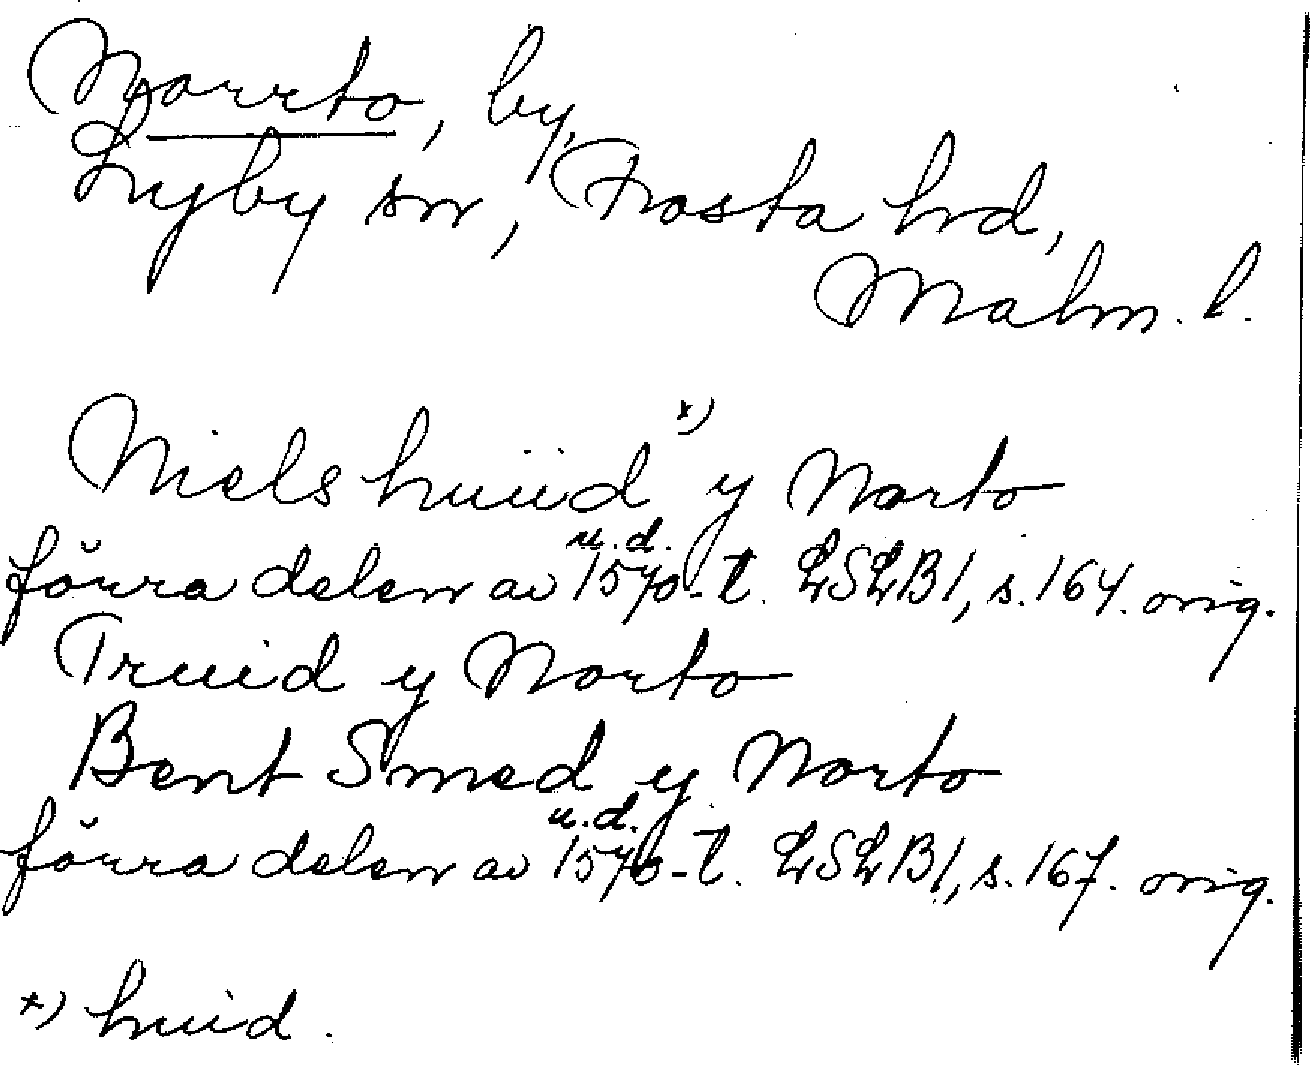 Norrto, by,
Lyby sn, Frosta hrd,
Malm. l.
Niels huiid *) y Norto
u.d.
förra delen av 1570-t. LSLB1, s. 164. orig.
Truid y Norto
Bent Smed y Norto
u.d.
förra delen av 1570-t. LSLB1, s. 167. orig.
*) huid.